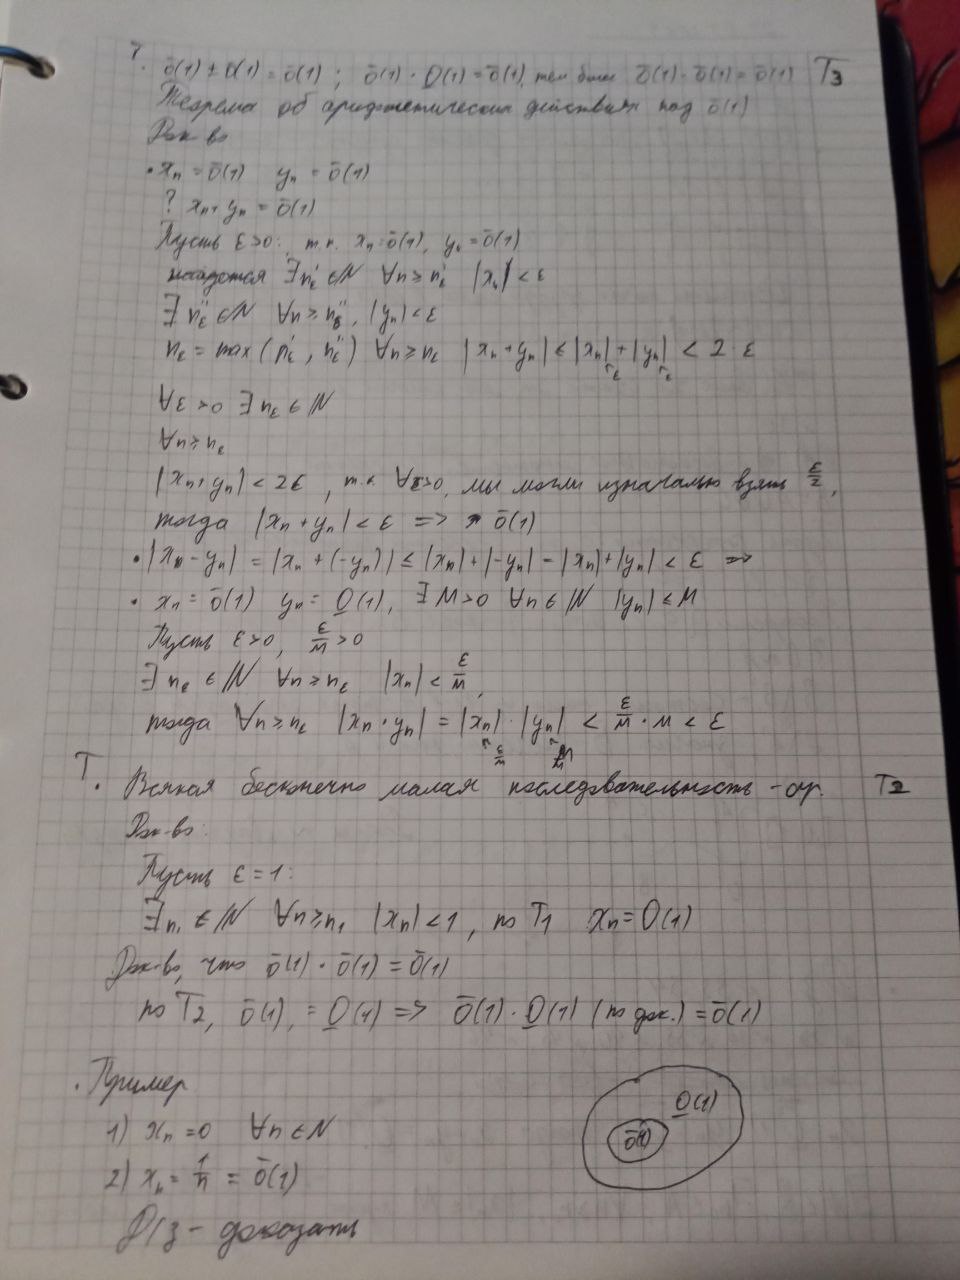 T. ō(1) ± ō(1) = ō(1); ō(1) · O̲(1) = ō(1), тем более ō(1) · ō(1) = ō(1) T3
Теорема об арифметических действиях над ō(1)
Док-во
• xₙ = ō(1) yₙ = ō(1)
? xₙ + yₙ = ō(1)
Пусть ε>0: т.к. xₙ = ō(1), yₙ = ō(1)
найдется ∃ n'_ε ∈ ℕ ∀n ≥ n'_ε |xₙ| < ε
∃ n''_ε ∈ ℕ ∀n ≥ n''_ε, |yₙ| < ε
n_ε = max(n'_ε, n''_ε) ∀n ≥ n_ε |xₙ + yₙ| ≤ |xₙ| + |yₙ| < 2·ε
<ε <ε
∀ε > 0 ∃ n_ε ∈ ℕ
∀n ≥ n_ε
|xₙ + yₙ| < 2ε, т.к. ∀ε>0, мы могли изначально взять ε/2,
тогда |xₙ + yₙ| < ε => ō(1)
• |xₙ - yₙ| = |xₙ + (-yₙ)| ≤ |xₙ| + |-yₙ| = |xₙ| + |yₙ| < ε =>
• xₙ = ō(1) yₙ = O̲(1), ∃ M>0 ∀n ∈ ℕ |yₙ| ≤ M
Пусть ε>0, ε/M > 0
∃ n_ε ∈ ℕ ∀n ≥ n_ε |xₙ| < ε/M,
тогда ∀n ≥ n_ε |xₙ · yₙ| = |xₙ| · |yₙ| < ε/M · M < ε
ε/M M
T. Всякая бесконечно малая последовательность - огр. T2
Док-во:
Пусть ε = 1:
∃ n₁ ∈ ℕ ∀n ≥ n₁ |xₙ| < 1, по T1 xₙ = O(1)
Док-во, что ō(1) · ō(1) = ō(1)
по T2, ō(1), = O̲(1) => ō(1) · O̲(1) (по док.) = ō(1)
• Пример O̲(1)
1) xₙ = 0 ∀n ∈ N ō(1)
2) xₙ = 1/n = ō(1)
Д/з - доказать